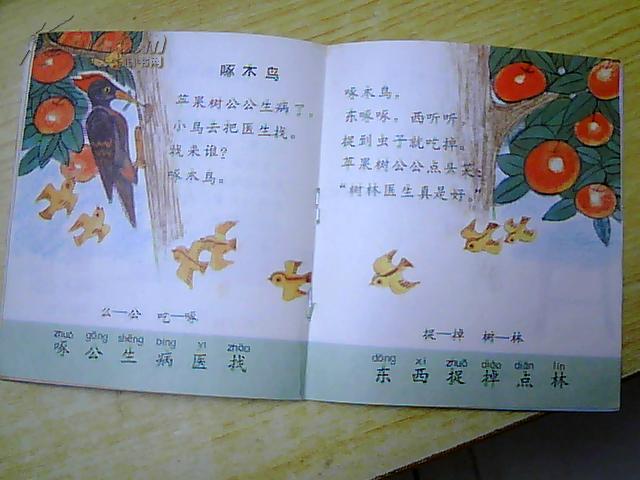 啄木鸟
苹果树公公生病了。
小鸟去把医生找。
找来谁？
啄木鸟。
么—公 吃—啄
zhuó gōng shēng bìng yī zhǎo
啄 公 生 病 医 找
啄木鸟。
东啄啄。西听听，
捉到虫子就吃掉。
苹果树公公点头笑：
“树林医生真是好。”
捉—掉 树—林
dōng xī zhuō diào diǎn lín
东 西 捉 掉 点 林